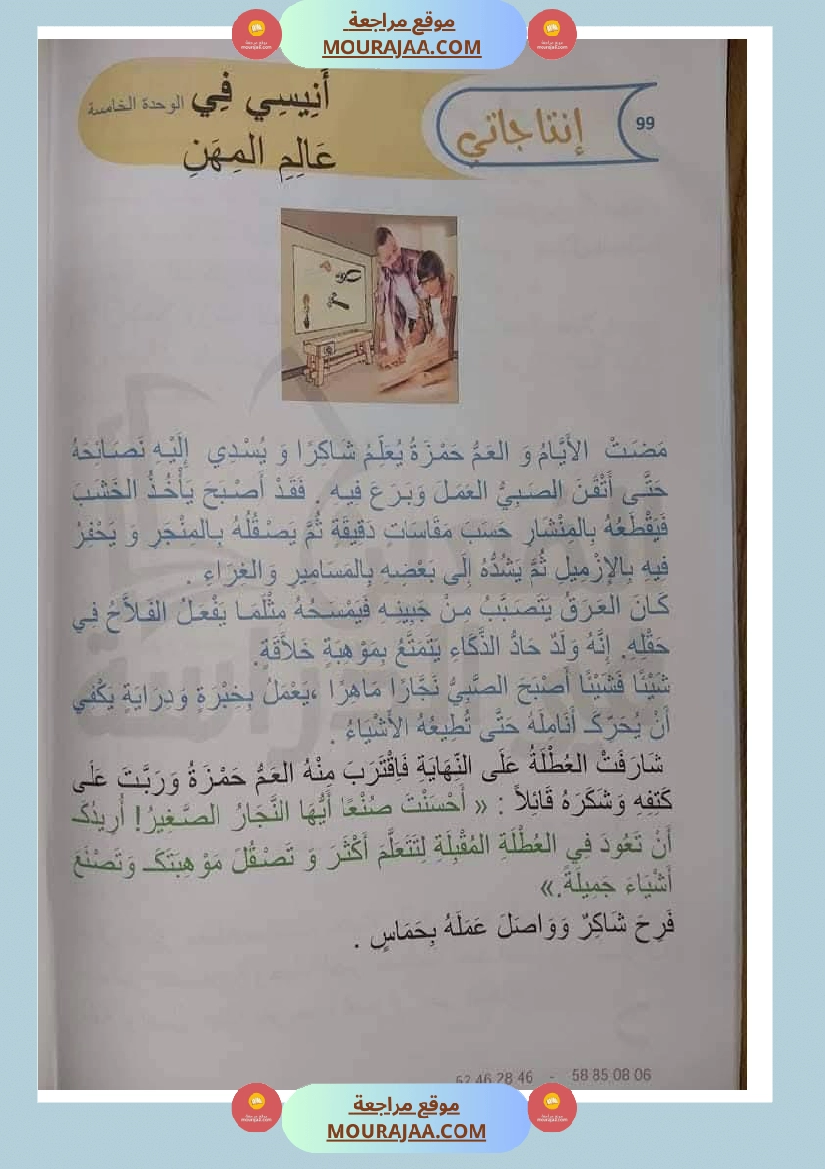 موقع مراجعة
MOURAJAA.COM
99
إنتاجاتي
أَنِيسِي فِي
الوحدة الخامسة
عَالِمِ المِهَنِ
مَضَتْ الأَيَّامُ وَ العَمُّ حَمْزَةُ يُعَلِّمُ شَاكِرًا وَ يُسْدِي إِلَيْهِ نَصَائِحَهُ
حَتَّى أَتْقَنَ الصَبِيُّ العَمَلَ وَبَرَعَ فِيهِ . فَقَدْ أَصْبَحَ يَأْخُذُ الخَشَبَ
فَيَقْطَعُهُ بِالمِنْشَارِ حَسَبَ مَقَاسَاتٍ دَقِيقَةٍ ثُمَّ يَصْقُلُهُ بِالمِنْجَرِ وَ يَحْفِرُ
فِيهِ بِالإِزْمِيلِ ثُمَّ يَشُدُّهُ إِلَى بَعْضِهِ بِالمَسَامِيرِ وَالغِرَاءِ .
كَانَ العَرَقُ يَتَصَبَّبُ مِنْ جَبِينِهِ فَيَمْسَحُهُ مِثْلَمَا يَفْعَلُ الفَلاَّحُ فِي
حَقْلِهِ. إِنَّهُ وَلَدٌ حَادُّ الذَّكَاءِ يَتَمَتَّعُ بِمَوْهِبَةٍ خَلاَّقَةٍ.
شَيْئًا فَشَيْئًا أَصْبَحَ الصَّبِيُّ نَجَّارًا مَاهِرًا ،يَعْمَلُ بِخِبْرَةٍ وَدِرَايَةٍ يَكْفِي
أَنْ يُحَرِّكَ أَنَامِلَهُ حَتَّى تُطِيعُهُ الأَشْيَاءُ .
شَارَفَتْ العُطْلَةُ عَلَى النِّهَايَةِ فَاِقْتَرَبَ مِنْهُ العَمُّ حَمْزَةُ وَرَبَّتَ عَلَى
كَتِفِهِ وَشَكَرَهُ قَائِلاً : « أَحْسَنْتَ صُنْعًا أَيُّهَا النَّجَارُ الصَّغِيرُ! أُرِيدُكَ
أَنْ تَعُودَ فِي العُطْلَةِ المُقْبِلَةِ لِتَتَعَلَّمَ أَكْثَرَ وَ تَصْقُلَ مَوْهِبَتَكَ وَتَصْنَعَ
أَشْيَاءَ جَمِيلَةً.»
فَرِحَ شَاكِرٌ وَوَاصَلَ عَمَلَهُ بِحَمَاسٍ .
52 46 28 46 - 58 85 08 06
موقع مراجعة
MOURAJAA.COM